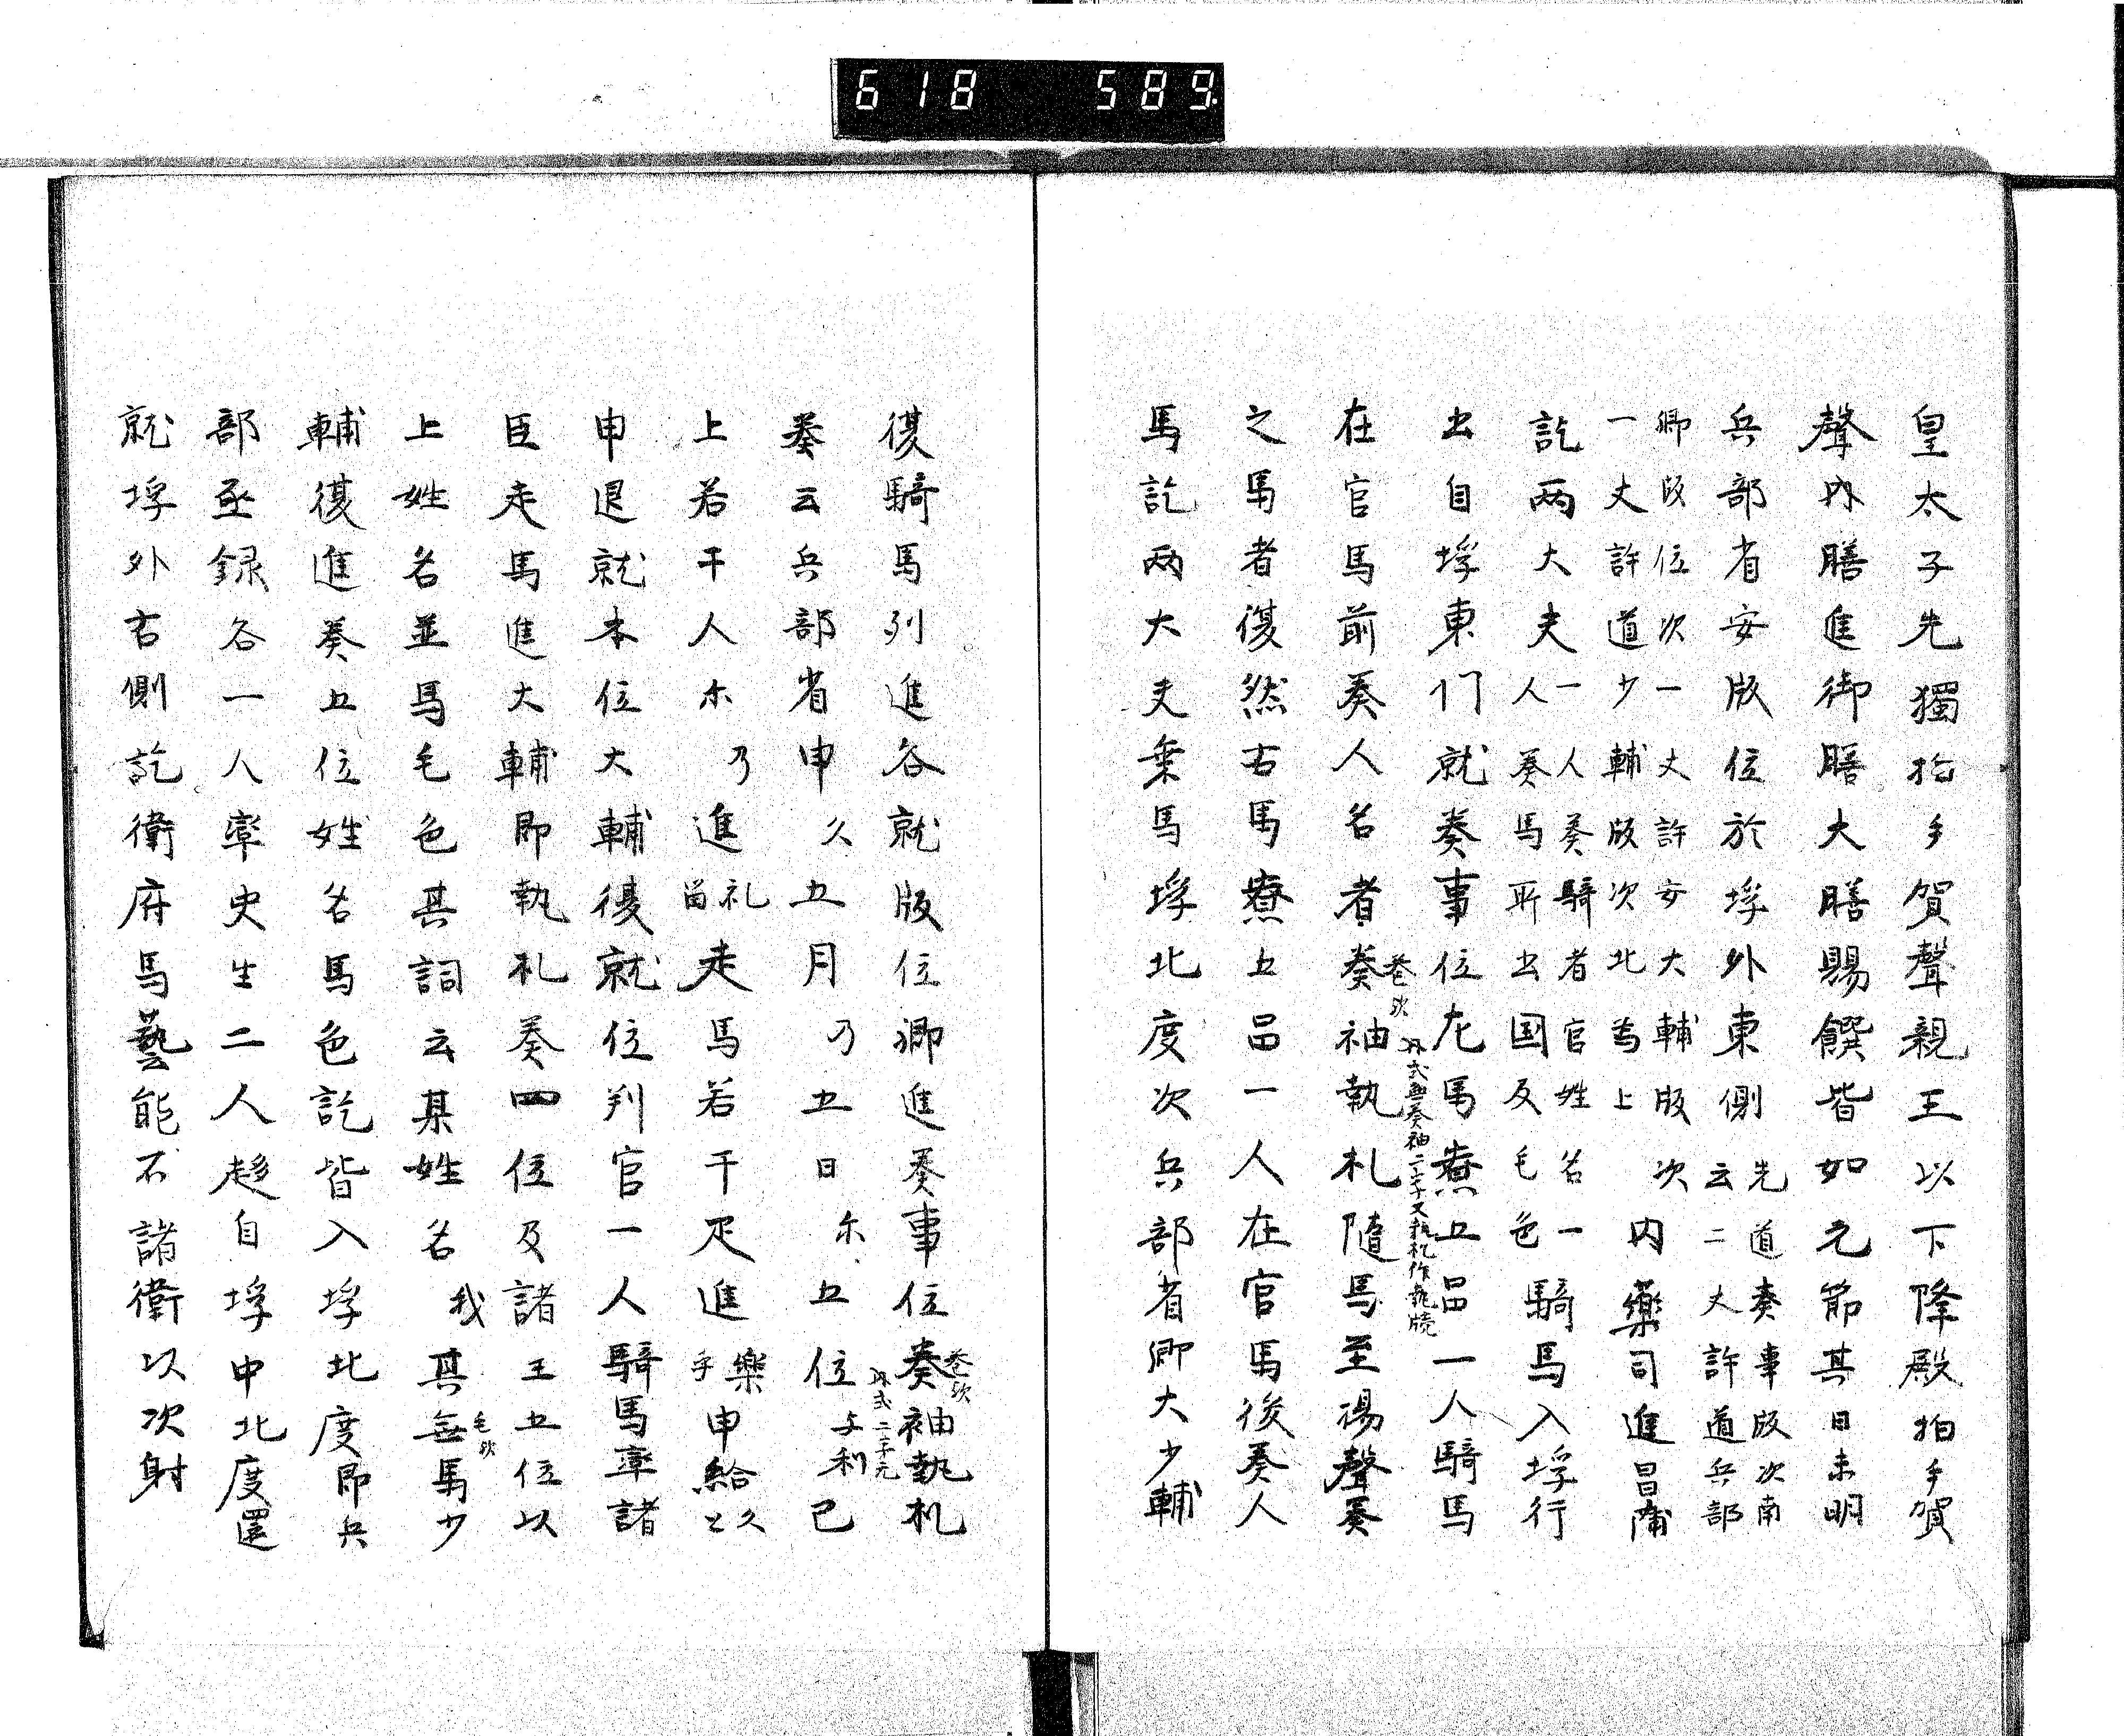 618 589
皇太子先獨拍手賀聲親王以下降殿拍手賀
聲内膳進御膳大膳賜饌皆如元節其日未明
兵部省安版位於埒外東側先道奏事版次南云二丈許道兵部
卿版位次一丈許安大輔版次一丈許道少輔版次北為上内藥司進昌蒲
訖両大夫一人奏騎者官姓名一人奏馬所出国及毛色騎馬入埒行
出自埒東門就奏事位左馬寮五品一人騎馬
在官馬前奏人名者奏袖執札隨馬至揚聲奏
巻欤
式無奏袖二字又執札作執牘
之馬者復然右馬寮五品一人在官馬後奏人
馬訖両大夫乗馬埒北度次兵部省卿大少輔
復騎馬列進各就版位卿進奏事位奏袖執札
巻欤
式二字元
奏云兵部省申久五月乃五日尓五位与利已
上若干人尓乃進礼留走馬若干疋進樂乎申給久止
申退就本位大輔復就位判官一人騎馬率諸
臣走馬進大輔即執札奏四位及諸王五位以
上姓名並馬毛色其詞云某姓名我其無馬少
毛欤
輔復進奏五位姓名馬色訖皆入埒北度即兵
部丞録各一人率史生二人趍自埒中北度還
就埒外右側訖衛府馬藝能不諸衛以次射